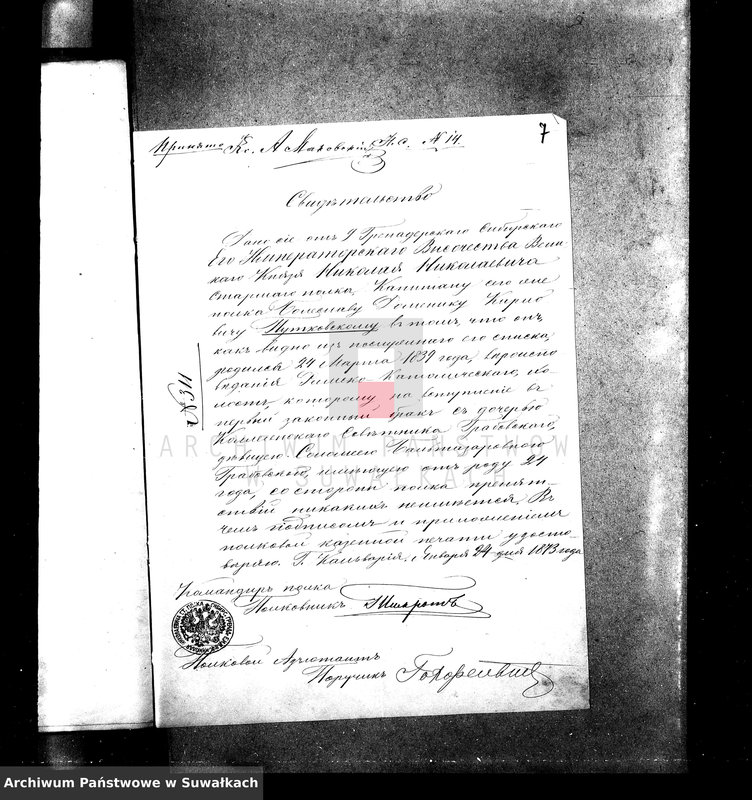 7
Принято Кс. А Маковскій Н. а. № 14.
Свидѣтельство
Дано сіе отъ 9 Гренадерскаго Сибирскаго
Его Императорскаго Высочества Вели
каго Князя Николая Николаевича
Старшаго полка, Капитану сего же
полка Доменику
вичу Путковскому въ томъ, что онъ,
какъ видно изъ послужнаго его списка,
родился 24 Марта 1839 года, вѣроиспо-
вѣданія Римско Католическаго, хо-
лостъ, которому на вступленіе въ
первый законный бракъ съ дочерью
Коллежскаго Совѣтника Грабовскаго,
дѣвицею Саломеею Бальтазаровною
Грабовскою, имѣющею отъ роду 24
года, со стороны полка препят-
ствій никакихъ неимѣется. Въ
чемъ подписомъ и приложеніемъ
полковой казенной печати удосто-
вѣряю. Г. Кальварія, Января 24 дня 1873 года
№ 311
Командиръ полка
Полковникъ
Полковой Адъютантъ
Поручикъ
ARCHIWUM PAŃSTWOWE
W SUWAŁKACH
Archiwum Państwowe w Suwałkach